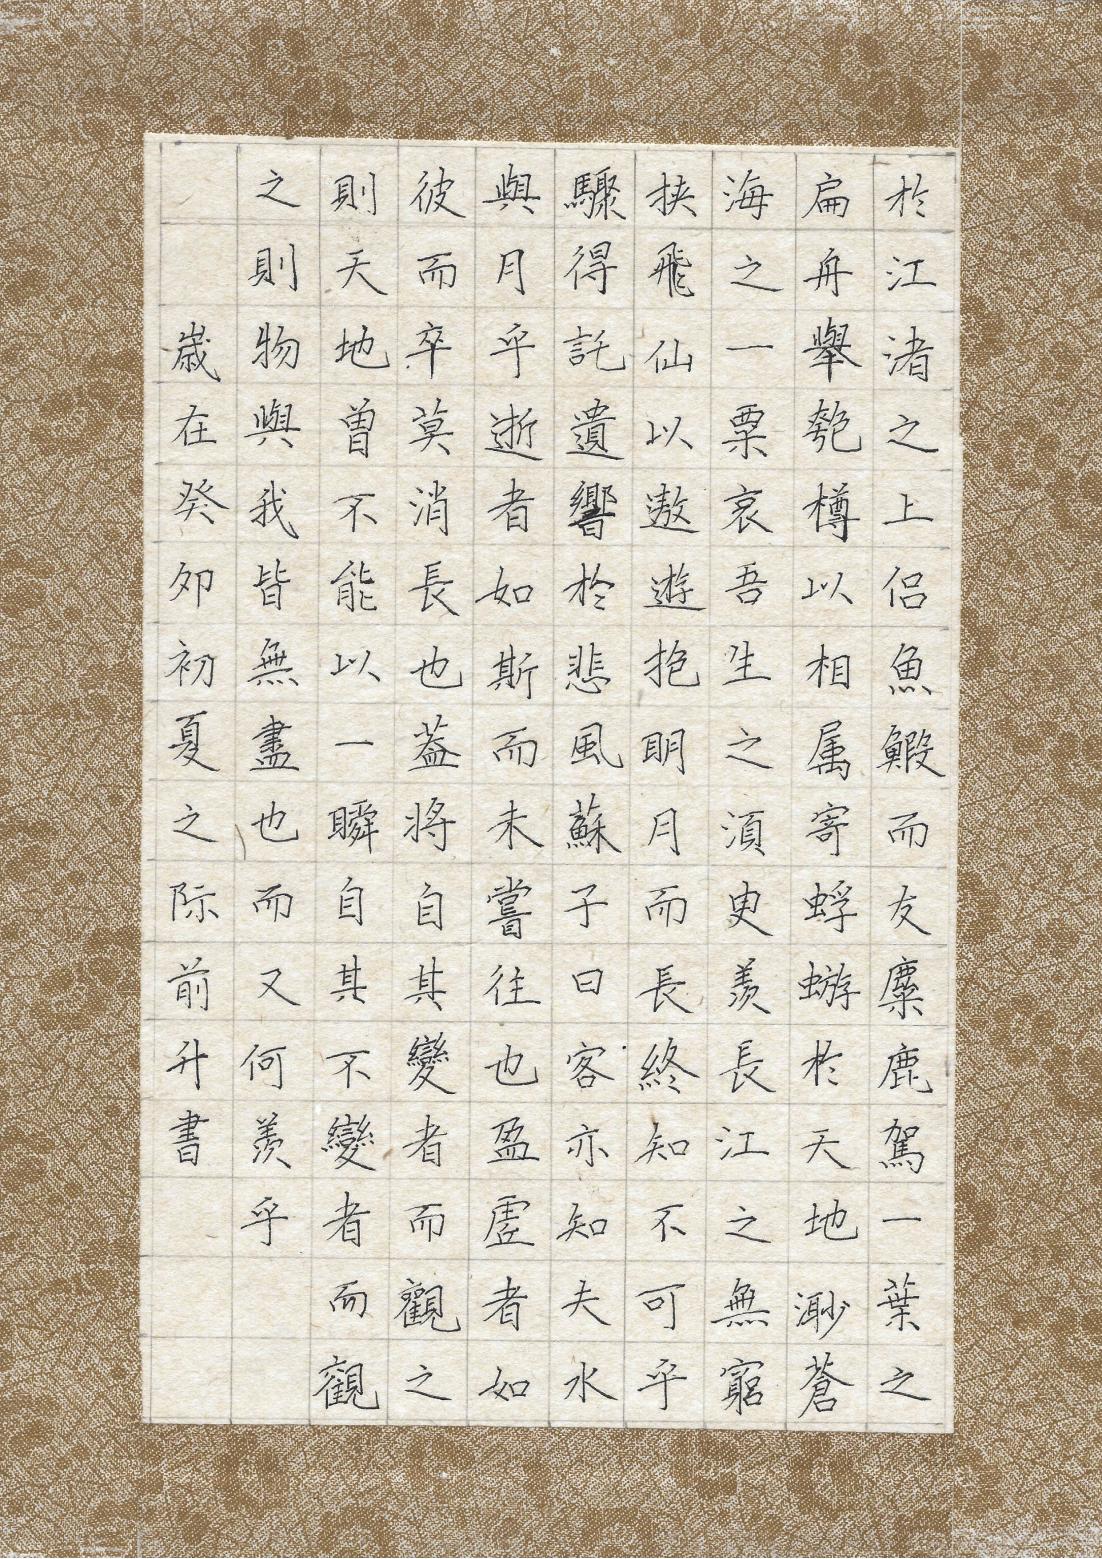 於江渚之上侶魚鰕而友麋鹿駕一葉之
扁舟舉匏樽以相属寄蜉蝣於天地渺蒼
海之一粟哀吾生之須臾羨長江之無窮
挾飛仙以遨遊抱明月而長終知不可乎
驟得託遺響於悲風蘇子曰客亦知夫水
與月乎逝者如斯而未嘗往也盈虚者如
彼而卒莫消長也葢將自其變者而觀之
則天地曾不能以一瞬自其不變者而觀
之則物與我皆無盡也而又何羨乎
歲在癸卯初夏之际前升書